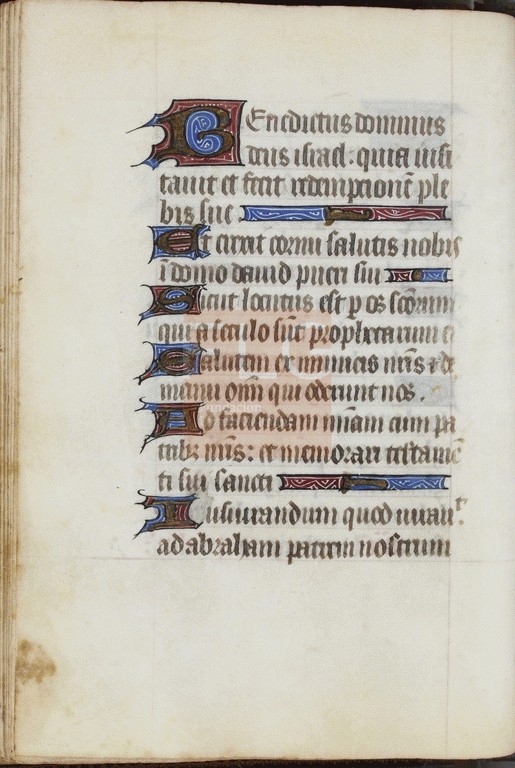 Benedictus dominus
deus israel. quia uisi
tauit et fecit redempcionē ple
bis sue
Et erexit cornu salutis nobis
ī domo dauid pueri sui
Sicut locutus est p os scōrum
qui a seculo sūt prophetarum eˀ
Salutem ex inimicis nrīs ⁊ de
manu oīm qui oderunt nos.
Ad faciendam mīam cum pa
tribꝫ nrīs: et memorari testamē
ti sui sancti
Iusiurandum quod iurauᵗ.
ad abraham patrem nostrum